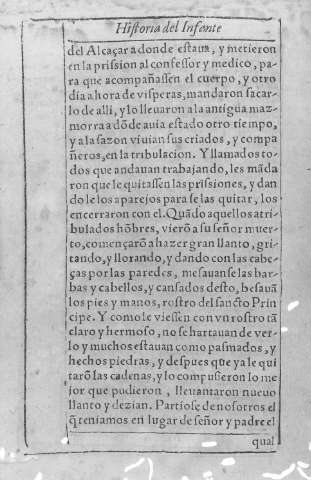 Historia del Infente
del Alcaçar a donde estaua, y metieron
en la prission al confessor y medico, pa-
ra que acompañassen el cuerpo, y otro
dia a hora de visperas, mandaron sacar-
lo de alli, y lo lleuaron a la antigua maz-
morra a dõde auia estado otro tiempo,
y a la sazon viuian sus criados, y compa
ñeros, en la tribulacion. Y llamados to-
dos que andauan trabajando, les mãda
ron que le quitassen las prissiones, y dan
dole los aparejos para se las quitar, los
encerraron con el. Quãdo aquellos atri-
bulados hõbres, vierõ a su señor muer-
to, començarõ a hazer gran llanto, gri-
tando, y llorando, y dando con las cabe-
ças por las paredes, mesauanse las bar-
bas y cabellos, y cansados desto, besauã
los pies y manos, rostro del sancto Prin
cipe. Y como le viessen con vn rostro tã
claro y hermoso, no se hartauan de ver-
lo y muchos estauan como pasmados, y
hechos piedras, y despues que ya le qui
tarõ las cadenas, y lo compusieron lo me
jor que pudieron, lleuantaron nueuo
llanto y dezian. Partiose de nosotros el
q̃ teniamos en lugar de señor y padre el
qual